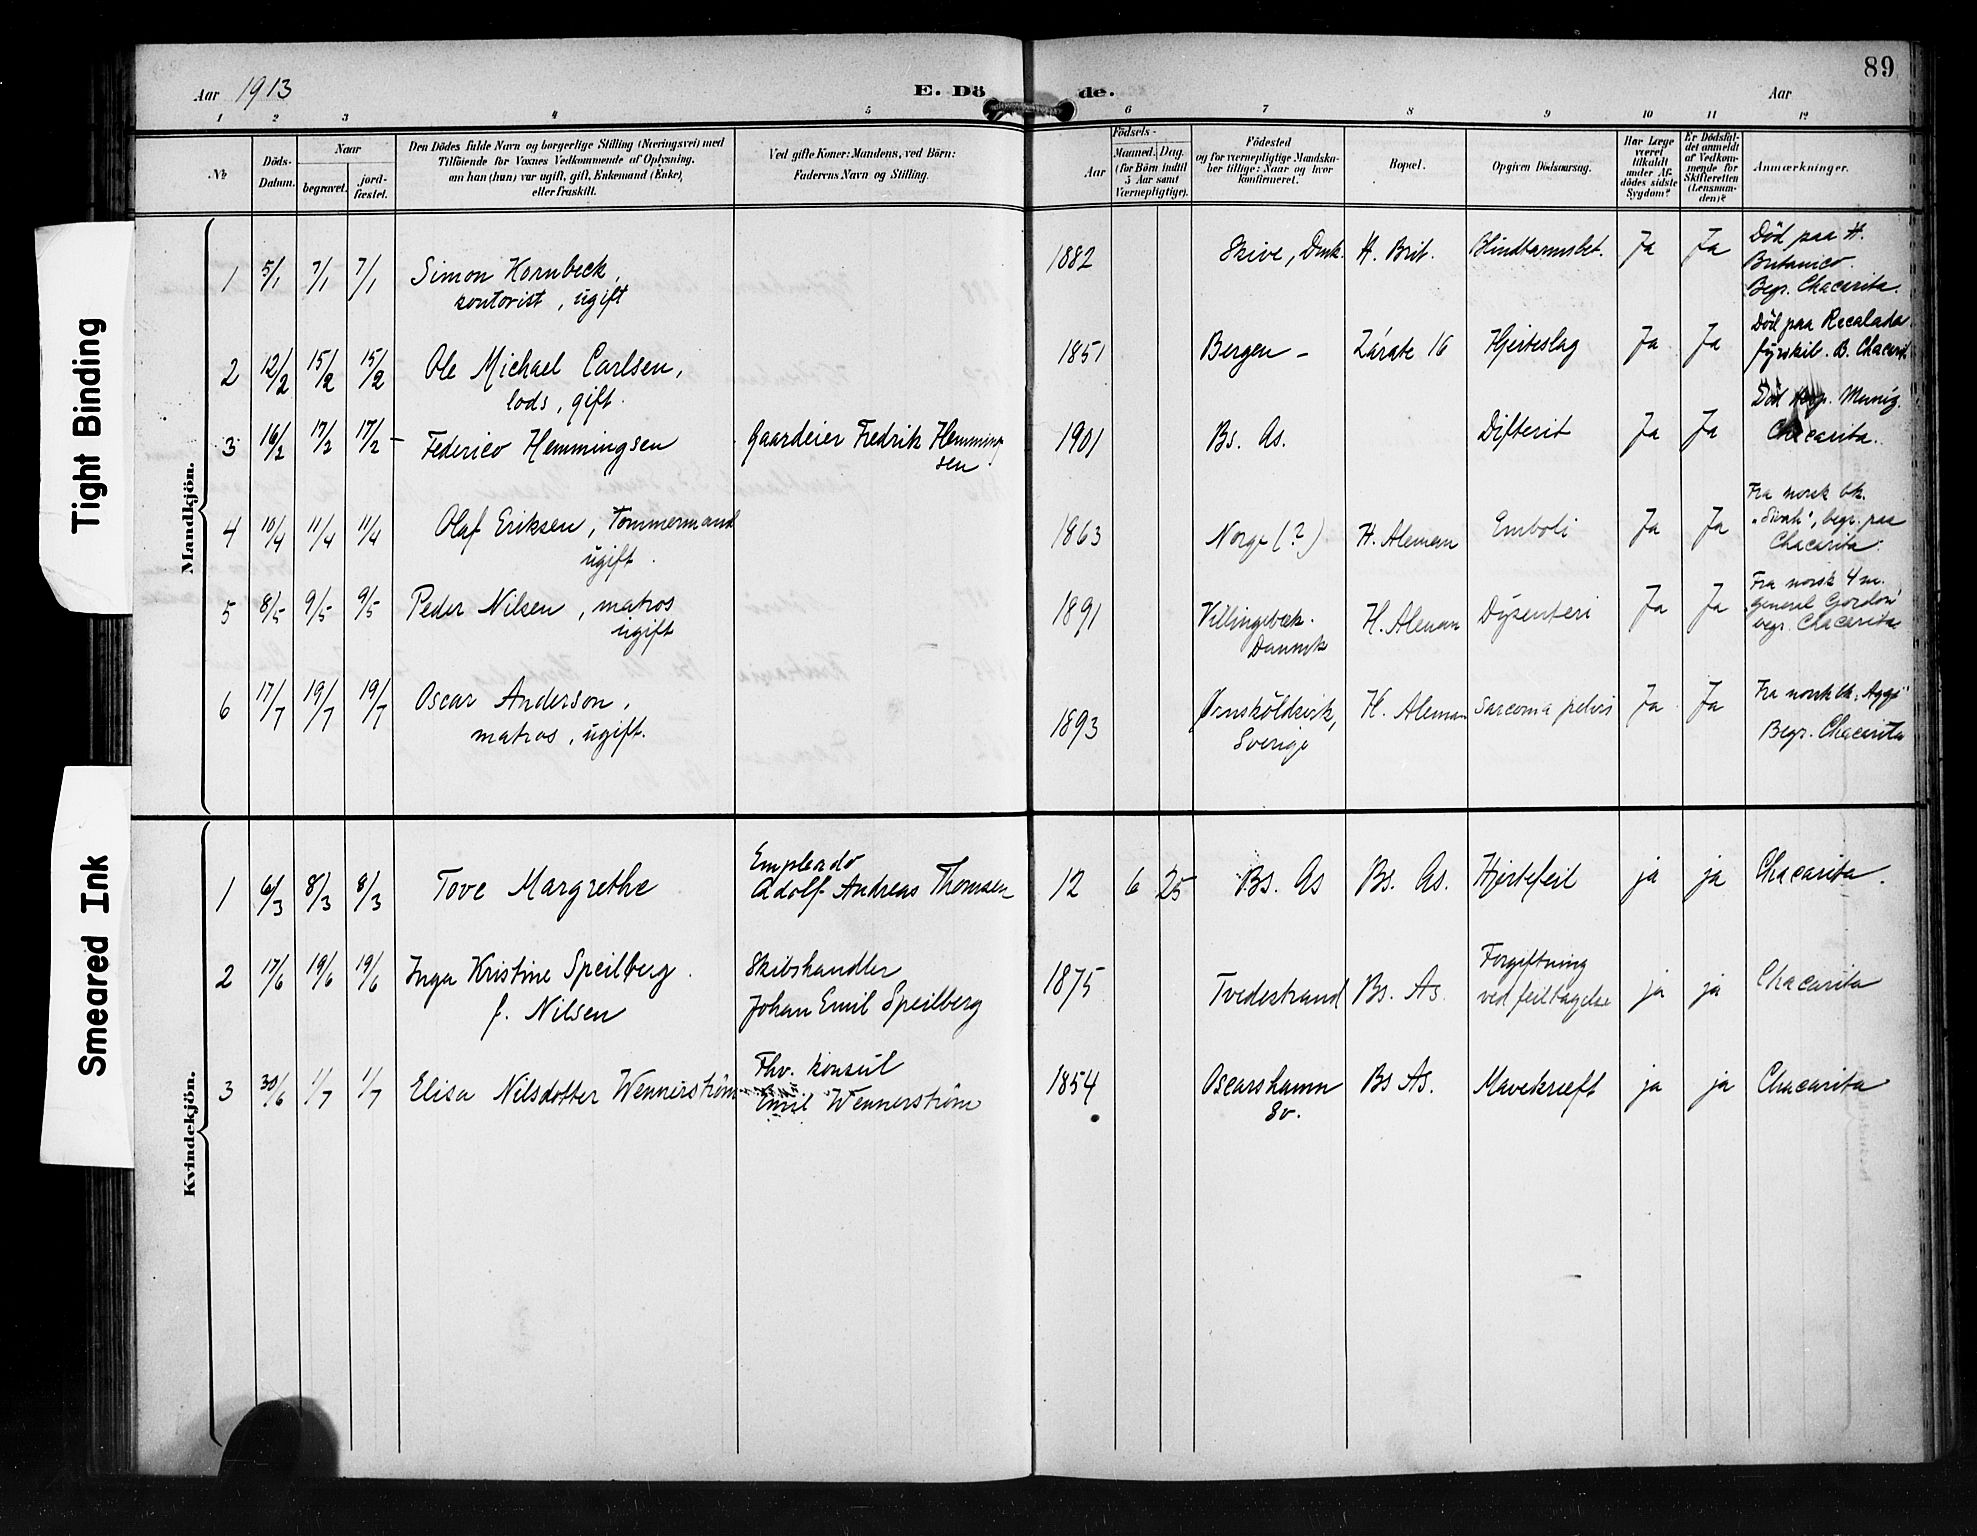 89
Aar 1913
E. Dö de.
Aar
1 2 3 4 5 6 7 8 9 10 11 12
№
Döds-
Datum.
Naar
begravet.
jord-
fæstet.
Den Dödes fulde Navn og borgerlige Stilling (Næringsvei) med
Tilföiende for Voxnes Vedkommende af Oplysning,
om han (hun) var ugift, gift, Enkemand (Enke),
eller fraskilt.
Ved gifte Koner: Mandens, ved Börn:
Faderens Navn og Stilling.
Födsels-
Aar
Maaned. Dag.
(for Börn indtil
5 Aar samt
Værnepligtige).
Födested
og for værnepligtige Mandska-
ber tillige: Naar og hvor
konfirmeret.
Bopæl.
Opgiven Dödsaarsag.
Har Læge
været
tilkaldt
under Af-
dödes sidste
Sygdom?
Er Dödsfal-
det anmeldt
af Vedkom-
mende for
Skifteretten
(Lensman-
den)?
Anmærkninger.
Tight Binding
Smeared Ink
Mandkjön.
1 5/1 7/1 7/1 Simon Kornbeck,
kontorist, ugift
1882 Skive, Dmk. H. Brit. Blindtarmsbet. Ja Ja
Död paa H.
Britanico.
Begr. Chacarita.
2 12/2 15/2 15/2 Ole Michael Carlsen,
lods, gift.
1851 Bergen - Zárate 16 Hjerteslag Ja Ja
Död paa Recalada
fyrskib. B. Chacarit.
3 16/2 17/2 17/2 - Federico Hemmingsen
Gaardeier Fredrik Hemming
sen
1901 Bs. As. Difterit Ja Ja
Död Muniz.
Chacarita.
4 10/4 11/4 11/4 Olaf Eriksen, Tømmermand
ugift.
1863 Norge (?) H. Aleman Emboli Ja Ja
Fra norsk bk.
begr. paa
Chacarita.
5 8/5 9/5 9/5 Peder Nilsen, matros
ugift
1891 Villingebæk.
Danmrk
H. Aleman Dysenteri Ja Ja
Fra norsk 4 m.
"General Gordon"
begr. Chacarita
6 17/7 19/7 19/7 Oscar Anderson,
matros, ugift.
1893 Ørnsköldsvik,
Sverige
H. Aleman Sarcoma pelvis Ja Ja
Fra norsk bk.
Begr. Chacarita
Kvindekjön.
1 6/3 8/3 8/3 Tove Margrethe
Empleado
Adolf Andreas Thomsen
12 6 25 Bs. As Bs. As. Hjertefeil ja ja Chacarita.
2 17/6 19/6 19/6 Inga Kristine Speilberg.
f. Nilsen
Skibshandler
Johan Emil Speilberg
1875 Tvedestrand Bs. As.
Forgiftning
ved feiltagelse
ja ja Chacarita
3 30/6 1/7 1/7 Elisa Nilsdotter Wennerström
Fhv. konsul
Emil Wennerström
1854 Oscarshamn
Sv.
Bs As. Mavekræft ja ja Chacarita